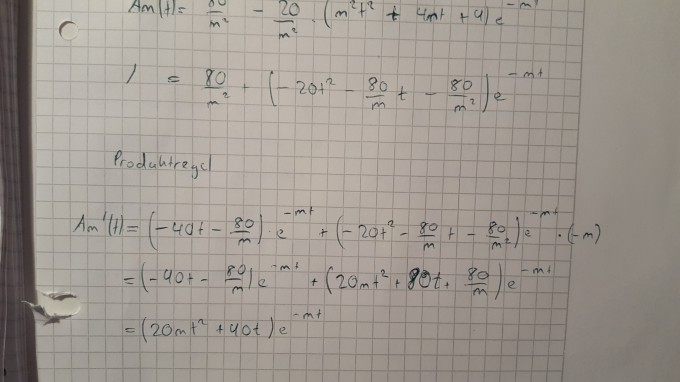 Am(t) = 80/m² - 20/m² · (m²t² + 4mt + 4) e^-mt
/ = 80/m² + (-20t² - 80/m t - 80/m²) e^-mt
Produktregel
Am'(t) = (-40t - 80/m) · e^-mt + (-20t² - 80/m t - 80/m²) e^-mt · (-m)
= (-40t - 80/m) e^-mt + (20mt² + 80t + 80/m) e^-mt
= (20mt² + 40t) e^-mt